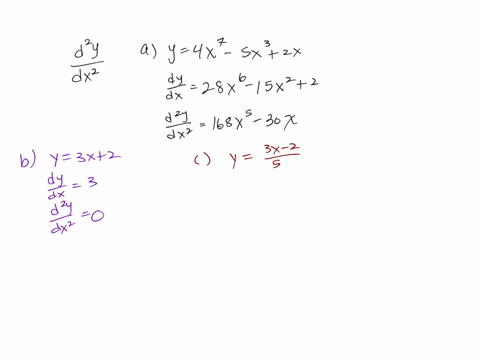 d²y/dx²
a) y = 4x⁷ - 5x³ + 2x
dy/dx = 28x⁶ - 15x² + 2
d²y/dx² = 168x⁵ - 30x
b) y = 3x + 2
dy/dx = 3
d²y/dx² = 0
c) y = (3x-2)/5